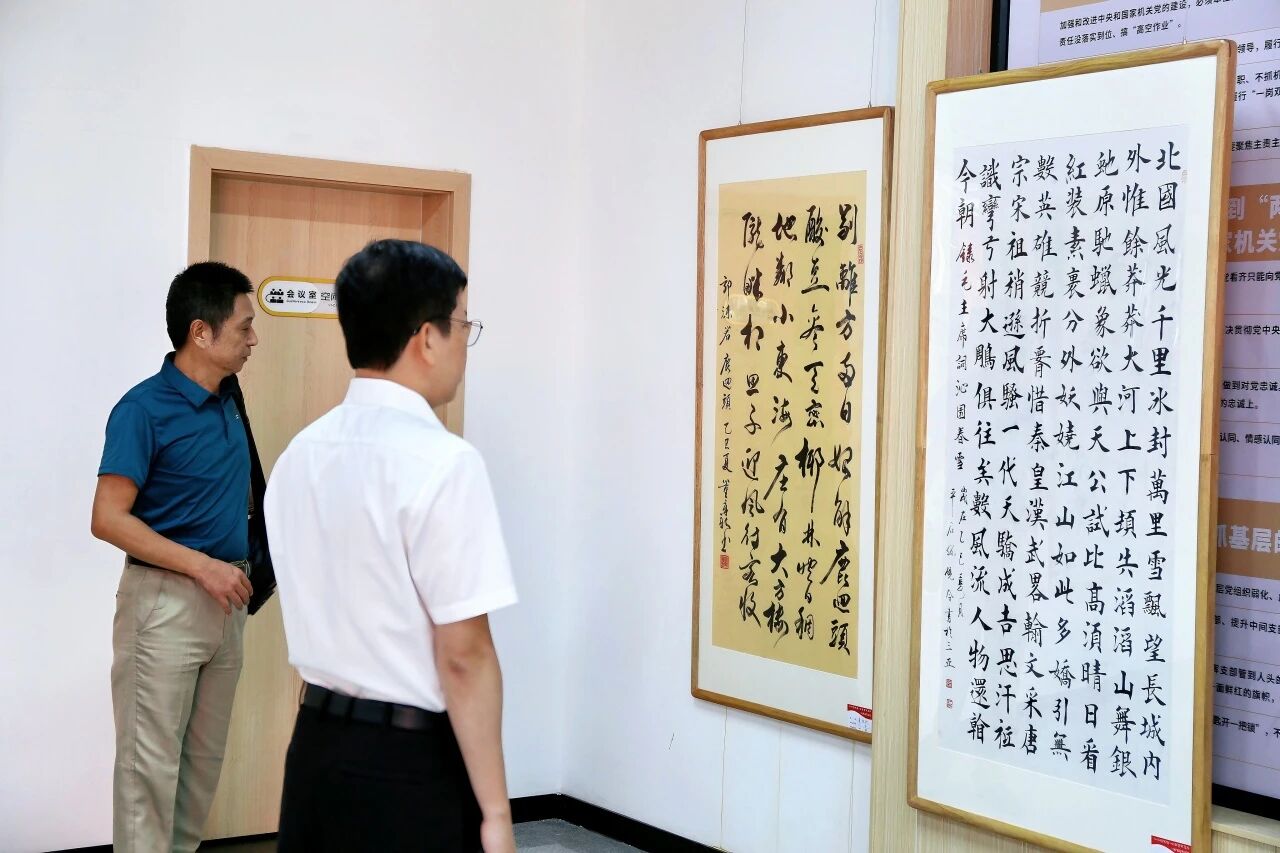 北國風光千里冰封萬里雪飄望長城内
外惟餘莽莽大河上下頓失滔滔山舞銀
虵原馳蠟象欲與天公試比高湏晴日看
紅装素裹分外妖嬈江山如此多嬌引無
數英雄競折腰惜秦皇漢武畧輸文采唐
宗宋祖稍遜風騷一代天驕成吉思汗祗
識彎弓射大鵰俱往矣數風流人物還看
今朝 錄毛主席詞沁園春雪 歲在乙巳夏月
書於三亚
别離方兩日始解鹿迴頭
酸豆參天密椰林日稠
地鄰小東海庄有大方楼
隴畔相思子迎風待客收
郭沫若鹿迴頭 乙巳夏
会议室
加强和改进中央和国家机关党的建设，必须
责任没落实到位、搞“高空作业”。
领导，履行
职、不抓机
履行“一岗双
聚焦主责主
到“两
家机关
看齐只能向党
决贯彻党中央
做到对党忠诚
的忠诚上。
认同、情感认同
抓基层的
层党组织弱化、
部、提升中间支部
支部管到人头的
一面鲜红的旗帜，
匙开一把锁”，不